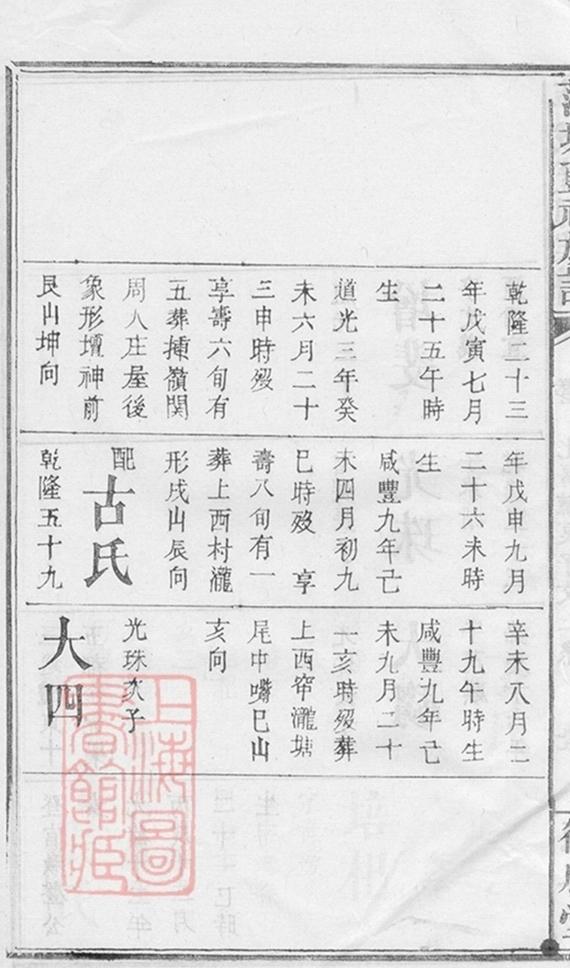 乾隆二十三
年戊寅七月
二十五午時
生
道光三年癸
未六月二十
三申時殁
享壽六旬有
五葬揷嶺関
周人庄屋後
象形壇神前
艮山坤向
年戊申九月
二十六未時
生
咸豐九年己
未四月初九
巳時殁 享
壽八旬有一
葬上西村瀧
形戌山辰向
配古氏
乾隆五十九
辛未八月二
十九午時生
咸豐九年己
未九月二十
一亥時殁葬
上西帘瀧塘
尾中嘴巳山
亥向
光珠次子
大四
上海圖
書館藏